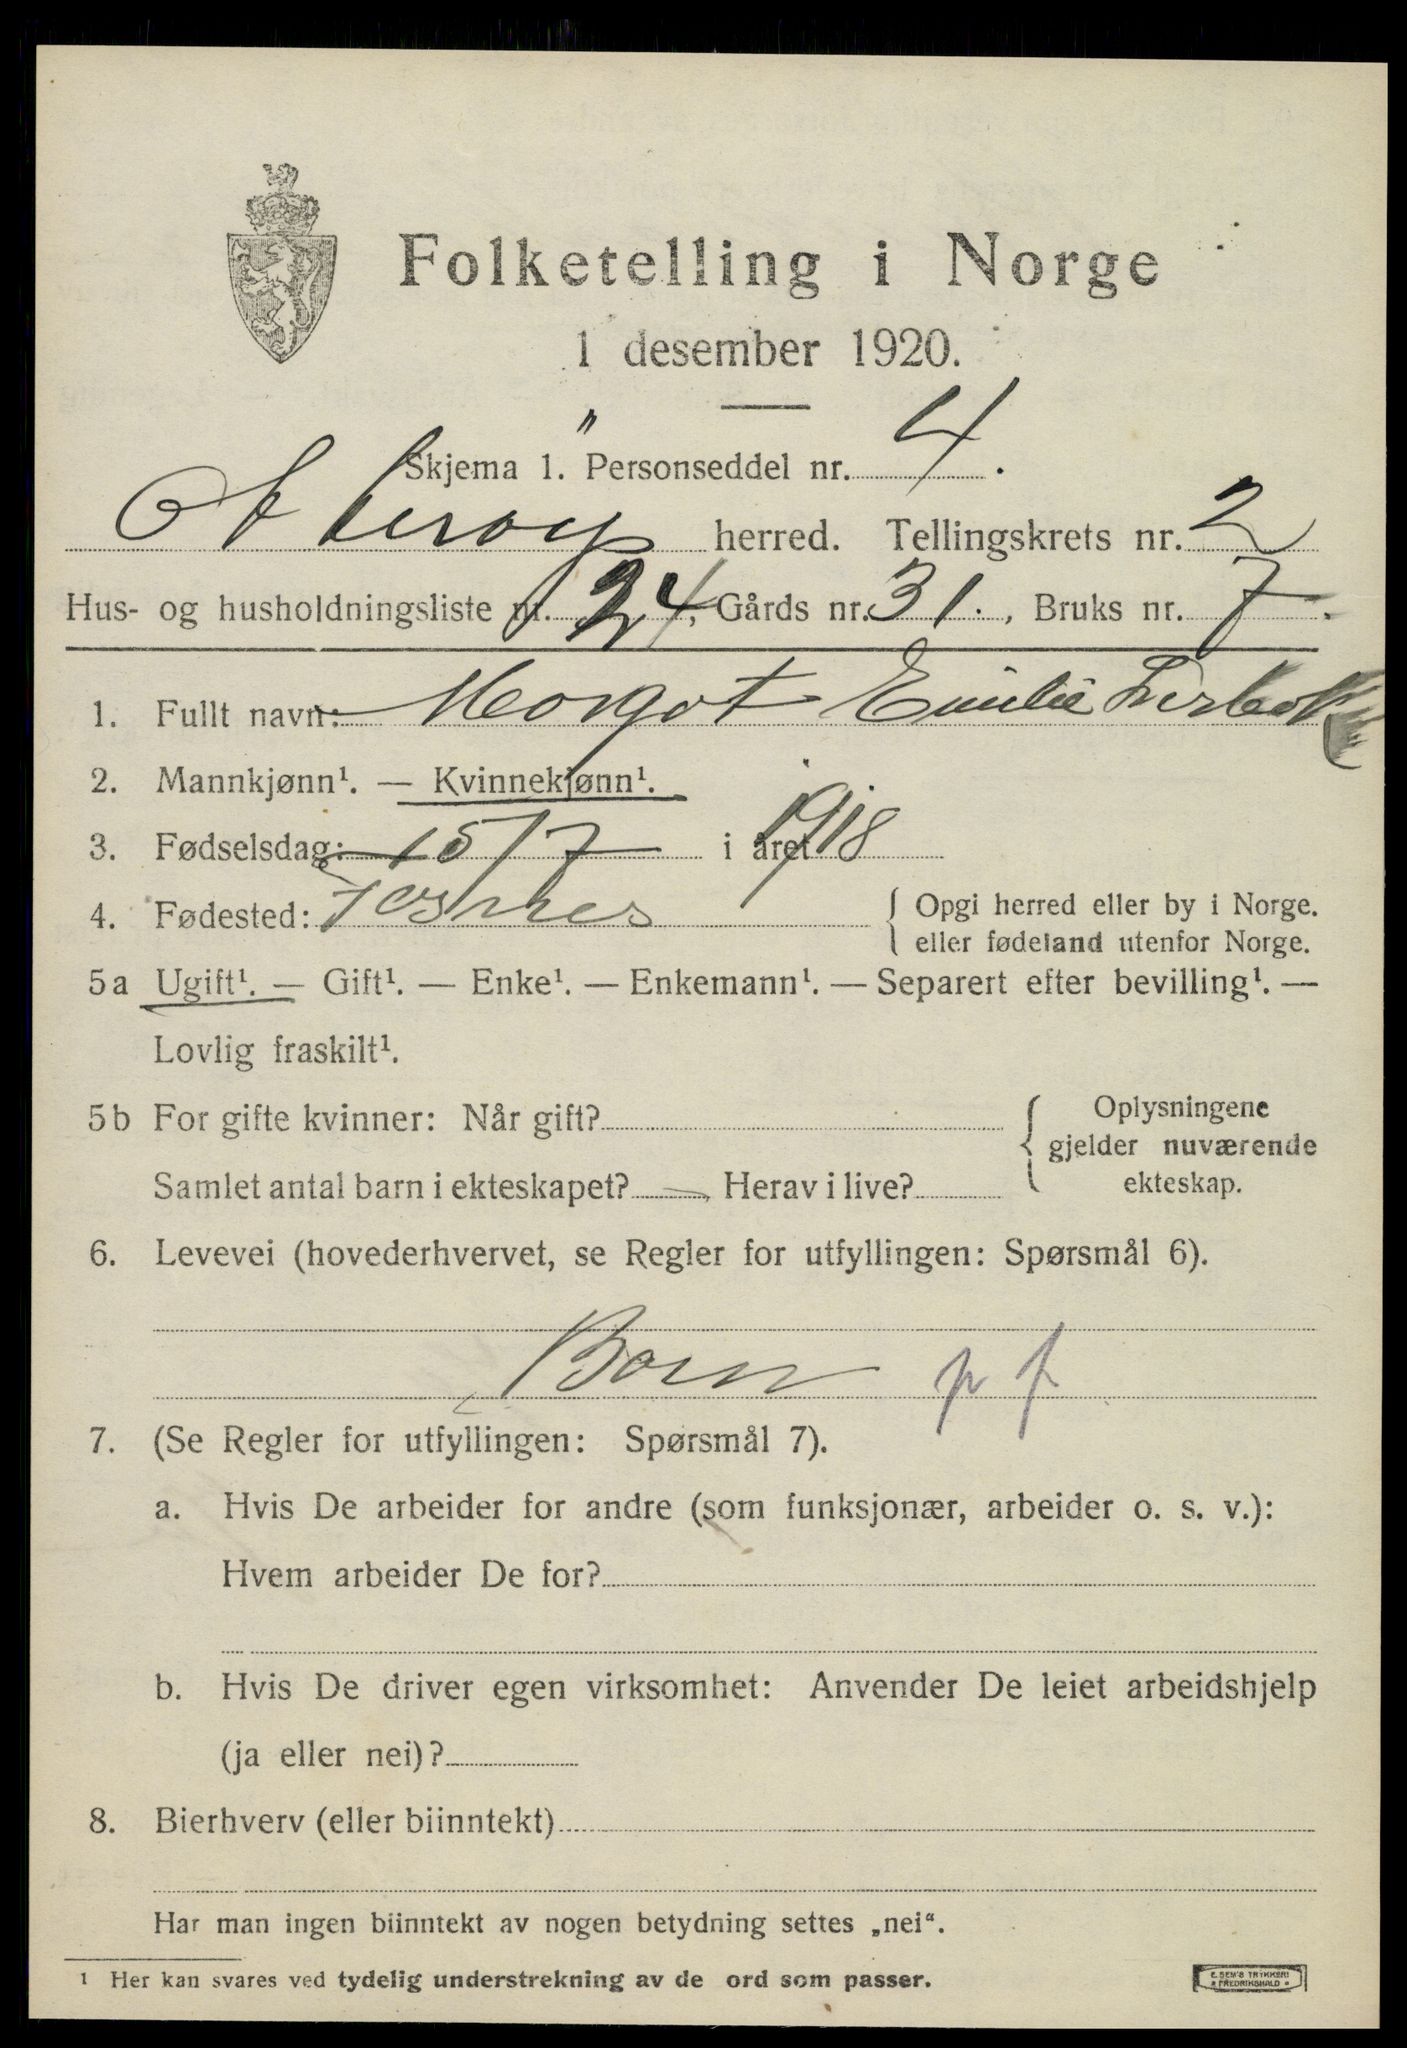 Folketelling i Norge
1 desember 1920.
Skjema 1. Personseddel nr. 4.
herred. Tellingskrets nr. 2
Hus- og husholdningsliste nr. 24, Gårds nr. 31., Bruks nr. 7.
1. Fullt navn: Morgot Emilie
2. Mannkjønn¹. — Kvinnekjønn¹.
3. Fødselsdag: 15/7 i året 1918
4. Fødested: Fosnes { Opgi herred eller by i Norge.
eller fødeland utenfor Norge.
5a Ugift¹. — Gift¹. — Enke¹. — Enkemann¹. — Separert efter bevilling¹. —
Lovlig fraskilt¹.
5b For gifte kvinner: Når gift? { Oplysningene
gjelder nuværende
Samlet antal barn i ekteskapet? — Herav i live? ekteskap.
6. Levevei (hovederhvervet, se Regler for utfyllingen: Spørsmål 6).
Barn p f
7. (Se Regler for utfyllingen: Spørsmål 7).
a. Hvis De arbeider for andre (som funksjonær, arbeider o. s. v.):
Hvem arbeider De for?
b. Hvis De driver egen virksomhet: Anvender De leiet arbeidshjelp
(ja eller nei)?
8. Bierhverv (eller biinntekt)
Har man ingen biinntekt av nogen betydning settes „nei“.
¹ Her kan svares ved tydelig understrekning av de ord som passer.
E. SEM'S TRYKKERI
FREDRIKSHALD